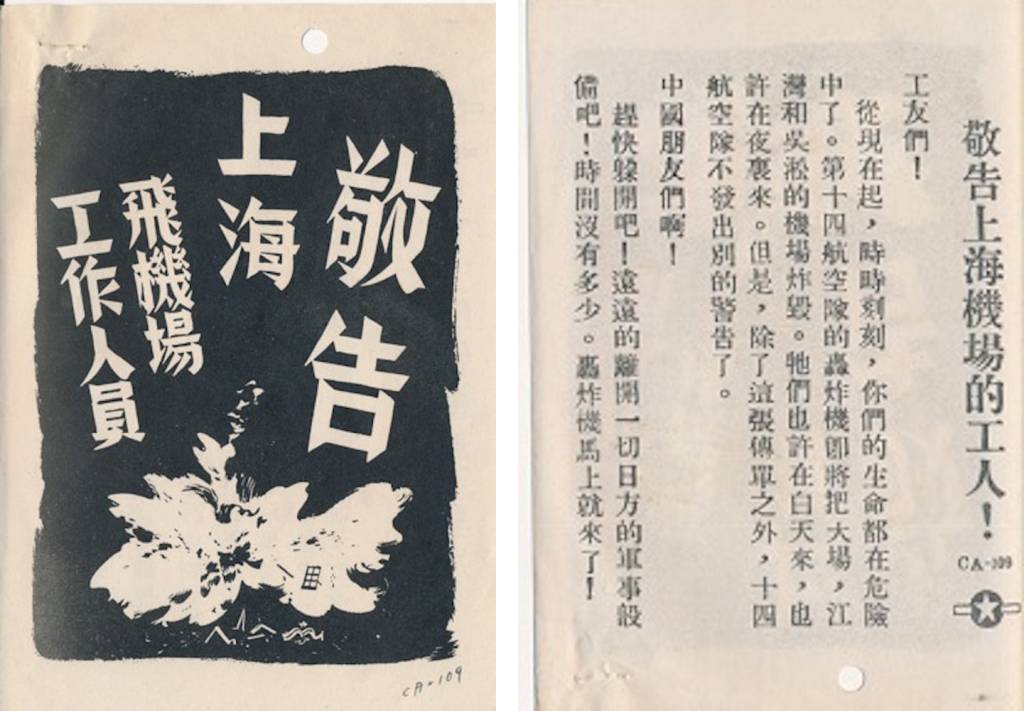 敬告
上海
飛機場
工作人員
CA-109
敬告上海機場的工人！
CA-109
工友們！
從現在起，時時刻刻，你們的生命都在危險
中了。第十四航空隊的轟炸機卽將把大場，江
灣和吳淞的機場炸毀。牠們也許在白天來，也
許在夜裏來。但是，除了這張傳單之外，十四
航空隊不發出別的警告了。
中國朋友們啊！
趕快躱開吧！遠遠的離開一切日方的軍事設
備吧！時間沒有多少。轟炸機馬上就來了！